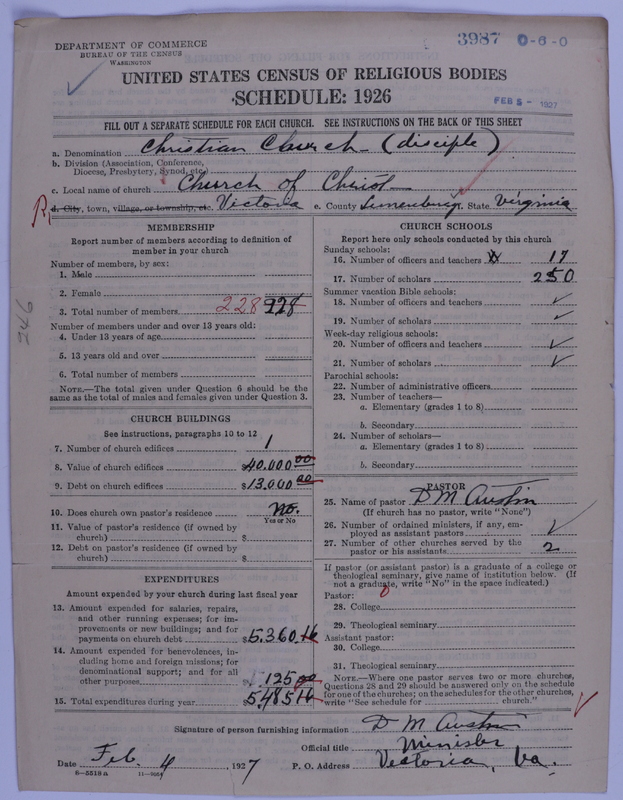 3987 0-6-0
DEPARTMENT OF COMMERCE
BUREAU OF THE CENSUS
WASHINGTON
UNITED STATES CENSUS OF RELIGIOUS BODIES
SCHEDULE: 1926
FEB 5 - 1927
FILL OUT A SEPARATE SCHEDULE FOR EACH CHURCH. SEE INSTRUCTIONS ON THE BACK OF THIS SHEET
a. Denomination Christian Church (disciple)
b. Division (Association, Conference, Diocese, Presbytery, Synod, etc.)
c. Local name of church Church of Christ
d. City, town, village, or township, etc. Victoria e. County Lunenburg f. State Virginia
R
246
MEMBERSHIP
Report number of members according to definition of
member in your church
Number of members, by sex:
1. Male
2. Female
3. Total number of members 228 228
Number of members under and over 13 years old:
4. Under 13 years of age
5. 13 years old and over
6. Total number of members
NOTE.—The total given under Question 6 should be the
same as the total of males and females given under Question 3.
CHURCH BUILDINGS
See instructions, paragraphs 10 to 12
7. Number of church edifices 1
8. Value of church edifices $40,000.00
9. Debt on church edifices $13,000.00
10. Does church own pastor's residence no.
Yes or No
11. Value of pastor's residence (if owned by
church) $
12. Debt on pastor's residence (if owned by
church) $
EXPENDITURES
Amount expended by your church during last fiscal year
13. Amount expended for salaries, repairs,
and other running expenses; for im-
provements or new buildings; and for
payments on church debt $5,360.16
14. Amount expended for benevolences, in-
cluding home and foreign missions; for
denominational support; and for all
other purposes $125.00
15. Total expenditures during year $5,485.16
CHURCH SCHOOLS
Report here only schools conducted by this church
Sunday schools:
16. Number of officers and teachers 17
17. Number of scholars 250
Summer vacation Bible schools:
18. Number of officers and teachers
19. Number of scholars
Week-day religious schools:
20. Number of officers and teachers
21. Number of scholars
Parochial schools:
22. Number of administrative officers
23. Number of teachers—
a. Elementary (grades 1 to 8)
b. Secondary
24. Number of scholars—
a. Elementary (grades 1 to 8)
b. Secondary
PASTOR
25. Name of pastor D M Austin
(If church has no pastor, write "None")
26. Number of ordained ministers, if any, em-
ployed as assistant pastors
27. Number of other churches served by the
pastor or his assistants 2
If pastor (or assistant pastor) is a graduate of a college or
theological seminary, give name of institution below. (If
not a graduate, write "No" in the space indicated.)
Pastor:
28. College
29. Theological seminary
Assistant pastor:
30. College
31. Theological seminary
NOTE.—Where one pastor serves two or more churches,
Questions 28 and 29 should be answered only on the schedule
for one of the churches; on the schedules for the other churches,
write "See schedule for church."
Signature of person furnishing information D M Austin
Official title Minister
Date Feb. 4, 1927 P. O. Address Victoria, Va.
8-5518a